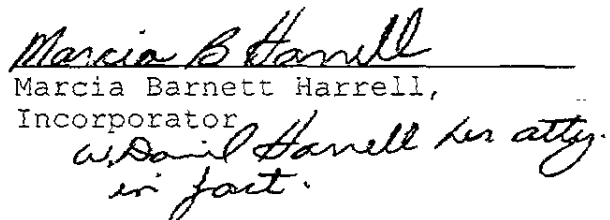 Marcia B Harrell
Marcia Barnett Harrell,
Incorporator
W. Daniel Harrell her atty.
in fact.